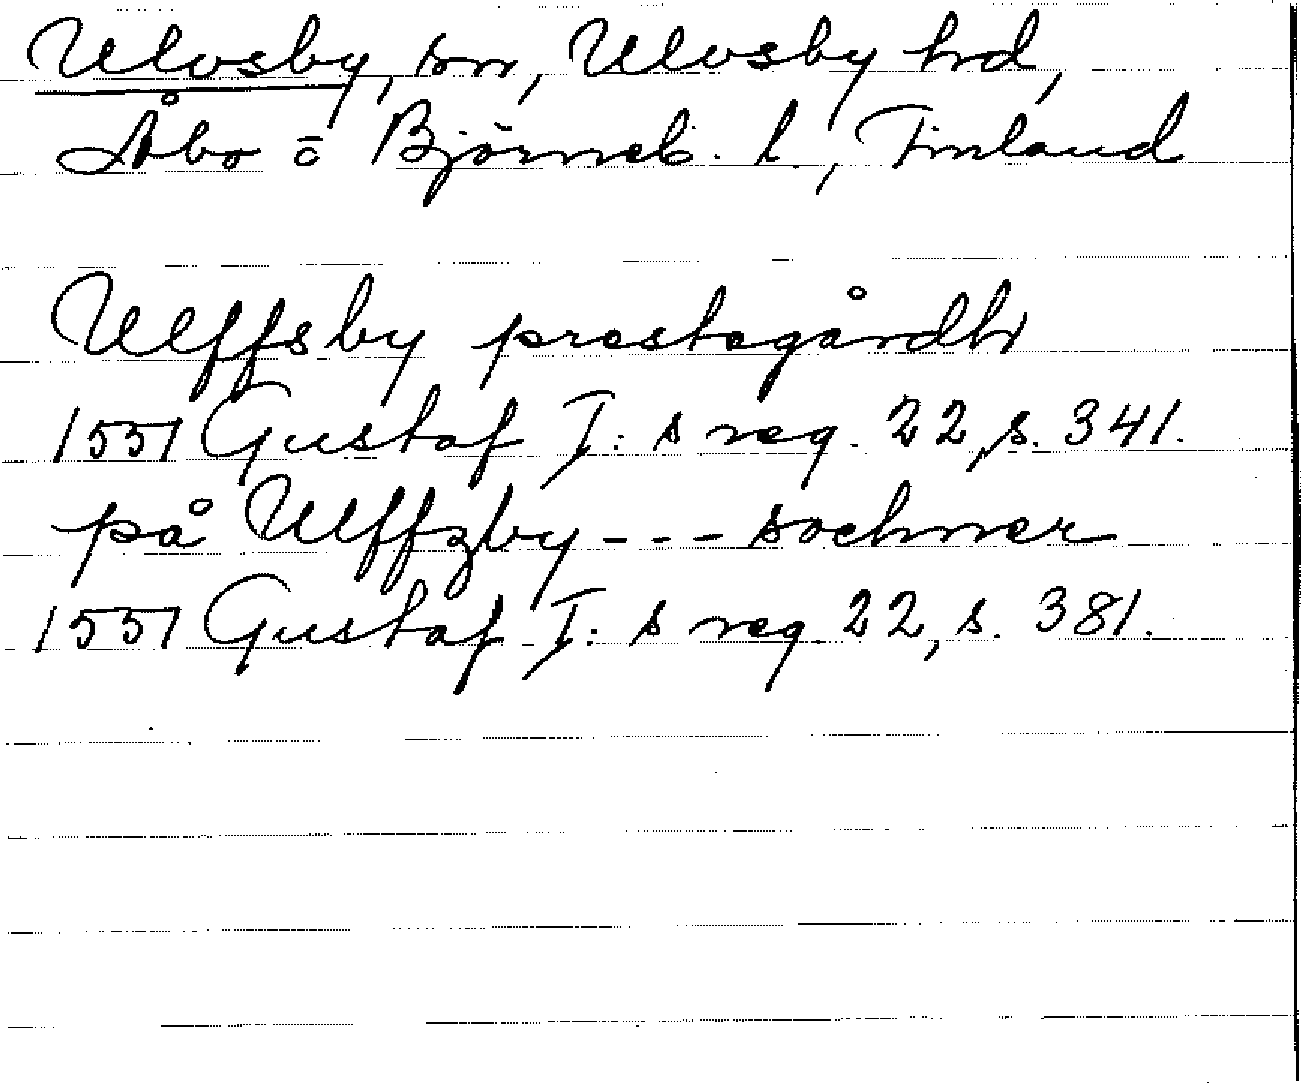 Ulvsby, sn, Ulvsby hrd,
Åbo o Björneb. l., Finland
Ulffsby prestagårdh
1551 Gustaf I:s reg. 22, s. 341.
på Ulffzby --- sochner
1551 Gustaf I:s reg 22, s. 381.